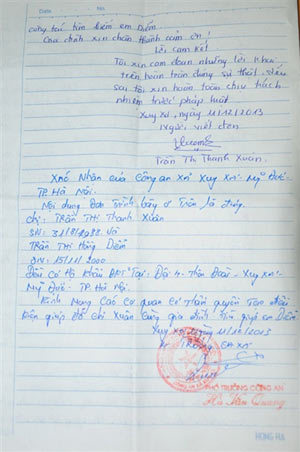 Date
cứu tìm kiếm em Diễm.
Gia đình xin chân thành cảm ơn!
Lời cam kết
Tôi xin cam đoan những lời khai
trên hoàn toàn đúng sự thật. Nếu sai
tôi xin hoàn toàn chịu trách
nhiệm trước pháp luật
Xuy xá, ngày 11/12/2013
Người viết đơn
Trần Thị Thanh Xuân
Xác Nhận của Công an Xã Xuy Xá - Mỹ Đức -
TP. Hà Nội.
Nội dung Đơn Trình bày ở Trên là đúng.
chị: TRẦN THỊ Thanh Xuân
SN: 31/8/1988 và
TRẦN THị Hồng Diễm
SN: 15/11/2000
Đều có Hộ khẩu ĐKTT Tại: Đội 4 - Thôn - Xuy xá -
Mỹ Đức - TP. Hà Nội.
Kính Mong Các Cơ quan có Thẩm quyền Tạo điều
kiện giúp đỡ chị Xuân cùng gia đình Tìm giúp em Diễm
Xuy xá ngày 11/12/2013
TRƯỞNG CA XÃ
PHÓ TRƯỞNG CÔNG AN
Hà Văn Quang
HONG HA